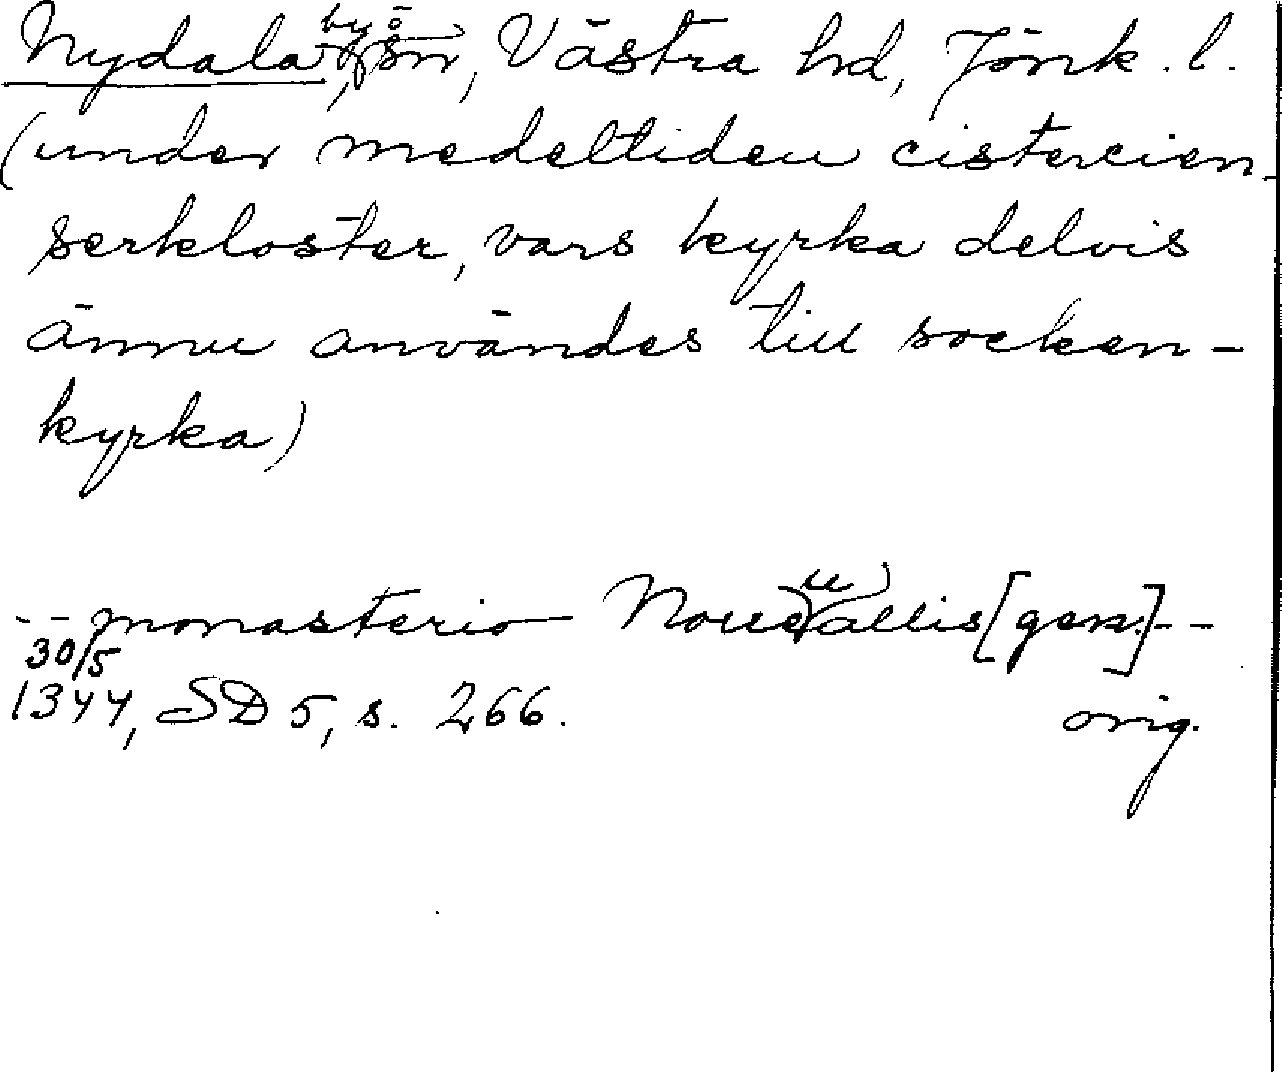 Nydala, by o. sn, Västra hd, Jönk. l.
(under medeltiden cistercien-
serkloster, vars kyrka delvis
ännu användes till socken-
kyrka)
-- monasterio Noueuallis [gen.] --
30/5
1344, SD 5, s. 266. orig.